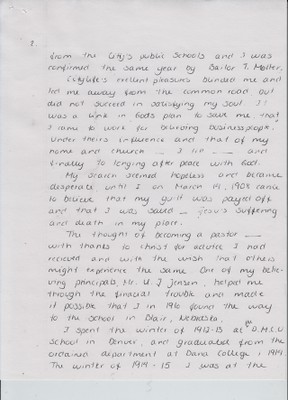 2.
from the City's public schools and I was
confirmed the same year by Pastor T. Møller.
Citylife's exellent pleasures blinded me and
led me away from the common road but
did not succeed in satisfying my soul. It
was a link in God's plan to save me, that
I came to work for believing businesspeople.
Under theirs influence and that of my
home and church — I lie — and
finally to longing after peace with God.
My search seemed hopeless and became
desperate until I on March 19, 1908 came
to believe that my guilt was payed off
and that I was saved — Jesus suffering
and death in my place.
The thought of becoming a pastor —
with thanks to Christ for advice I had
recieved and with the wish that others
might experience the same. One of my belie-
ving principals, Mr. U. J Jensen, helped me
through the finacial trouble and made
it possible that I in 1910 found the way
to the school in Blair, Nebraska.
I spent the winter of 1912-13 at D.M.C.U
School in Denver, and graduated from the
ordained department at Dana College i 1914
The winter of 1914-15 I was at the